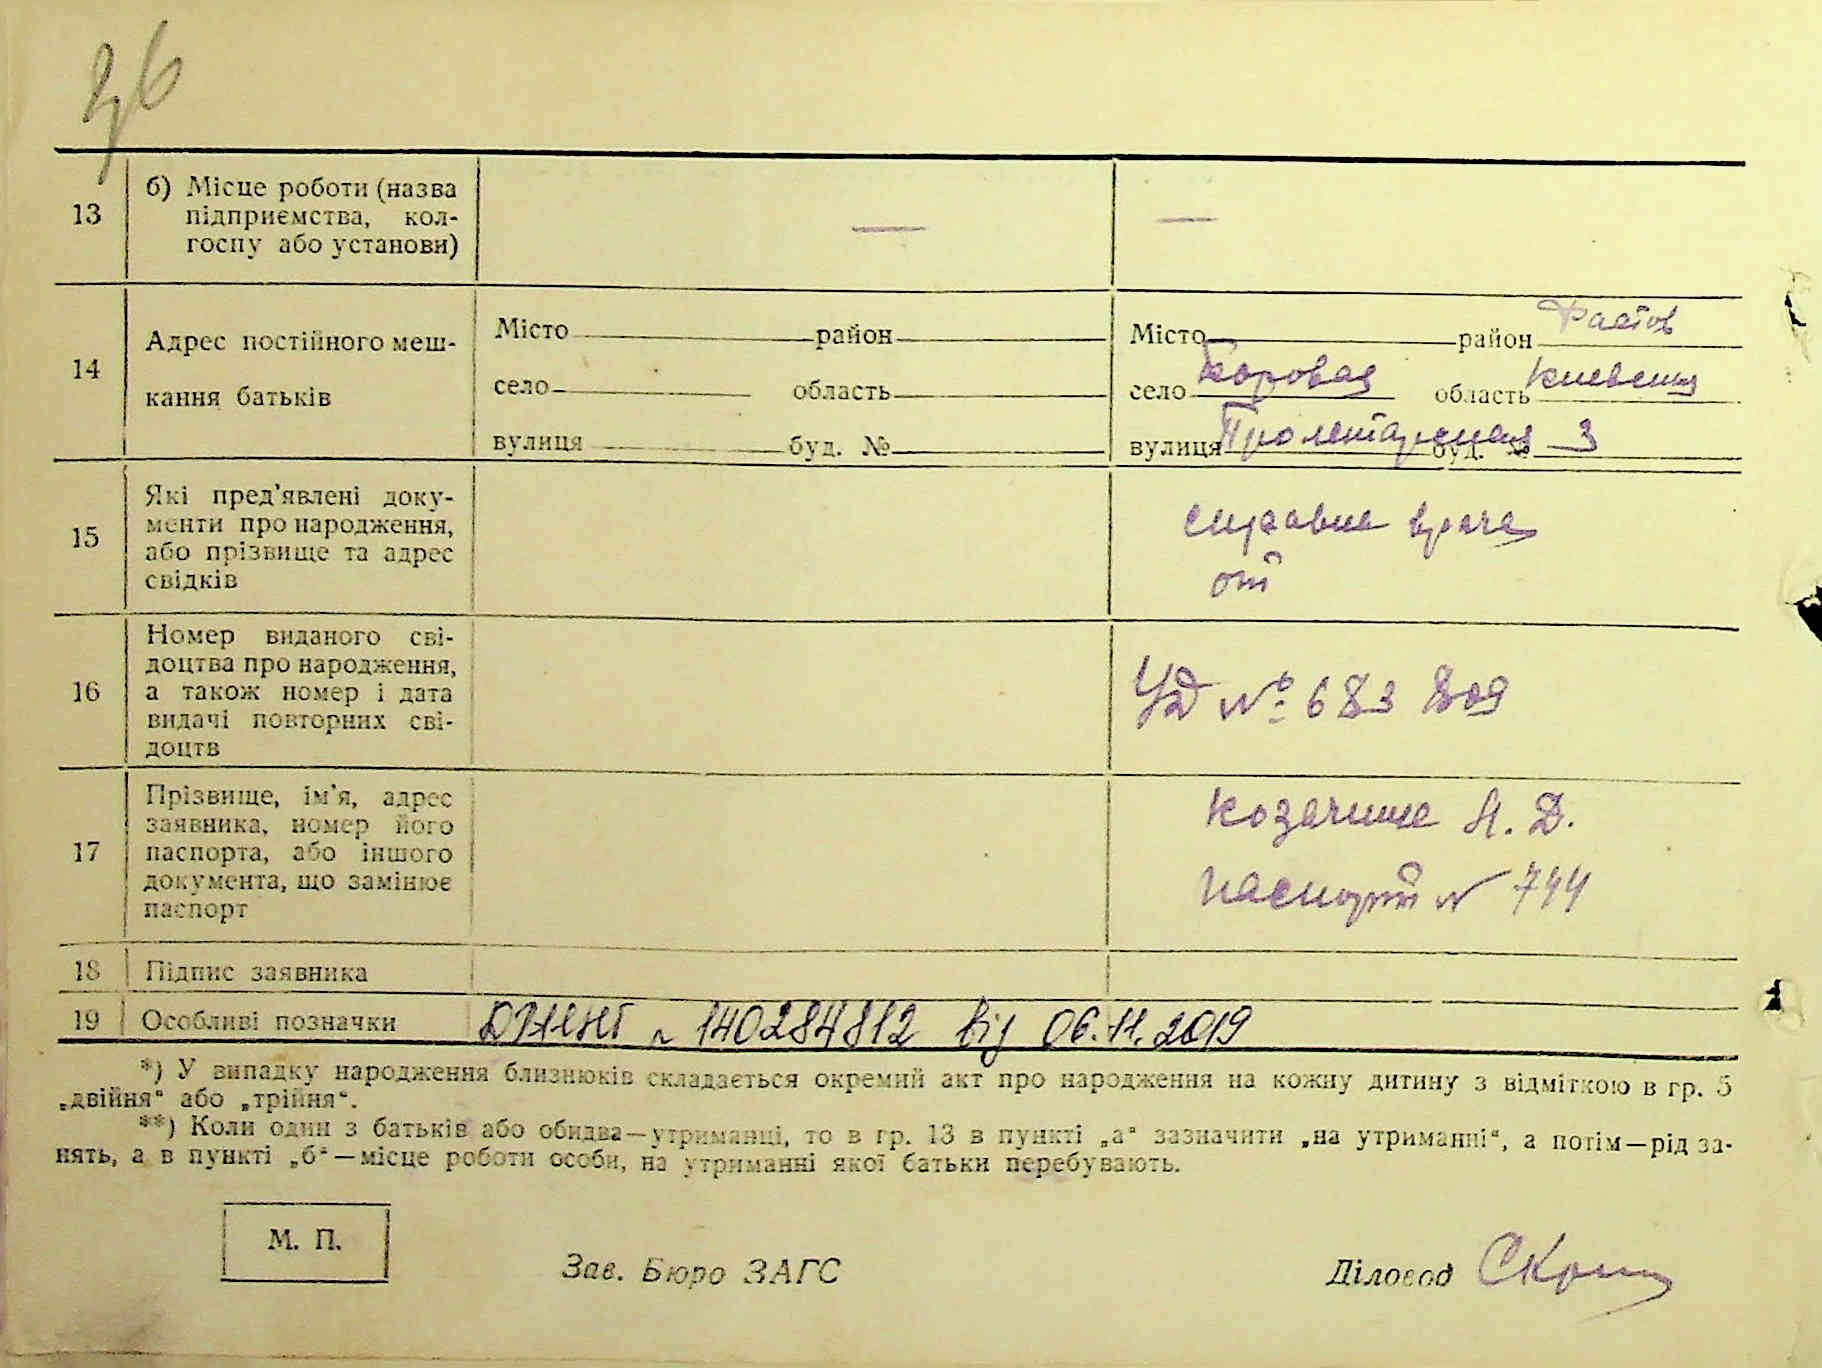 36
13
б) Місце роботи (назва
підприємства, кол-
госпу або установи)
—
—
14
Адрес постійного меш-
кання батьків
Місто район
село область
вулиця буд. №
Місто район Фастов
село Боровая область Киевская
вулиця Пролетарская буд. № 3
15
Які пред'явлені доку-
менти про народження,
або прізвище та адрес
свідків
справка врача
от
16
Номер виданого сві-
доцтва про народження,
а також номер і дата
видачі повторних сві-
доцтв
УД № 683809
17
Прізвище, ім'я, адрес
заявника, номер його
паспорта, або іншого
документа, що замінює
паспорт
Д.
паспорт № 744
18
Підпис заявника
19
Особливі позначки
№ 140284812 від 06.11.2019
*) У випадку народження близнюків складається окремий акт про народження на кожну дитину з відміткою в гр. 5
„двійня“ або „трійня“.
**) Коли один з батьків або обидва—утриманці, то в гр. 13 в пункті „а“ зазначити „на утриманні“, а потім—рід за-
нять, а в пункті „б“—місце роботи особи, на утриманні якої батьки перебувають.
М. П.
Зав. Бюро ЗАГС
Діловод